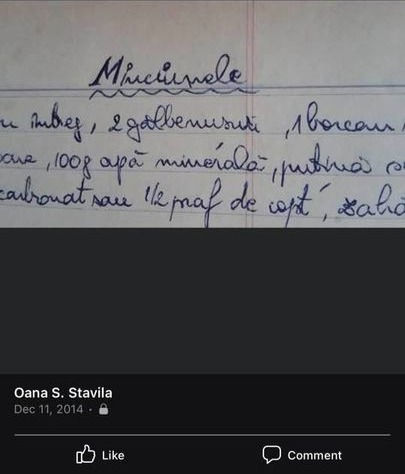 Minciunele
întreg, 2 gălbenușuri, 1 borcan
, 100g apă minerală, puțină
sau 1/2 praf de copt,
Oana S. Stavila
Dec 11, 2014 ·
Like Comment